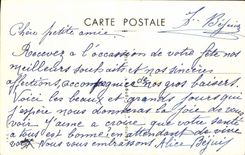 CARTE POSTALE
Chère petite amie
Recevez à l'occasion de votre fête nos
meilleurs souhaits et nos sincères
affections, accompagnées de nos gros baisers
Voici les beaux et grands jours qui
j'espère nous donneras la joie de vous
voir. J'aime a croire que votre santé
a tous est bonne en attendant de vive
voix Nous vous embrassons Alice